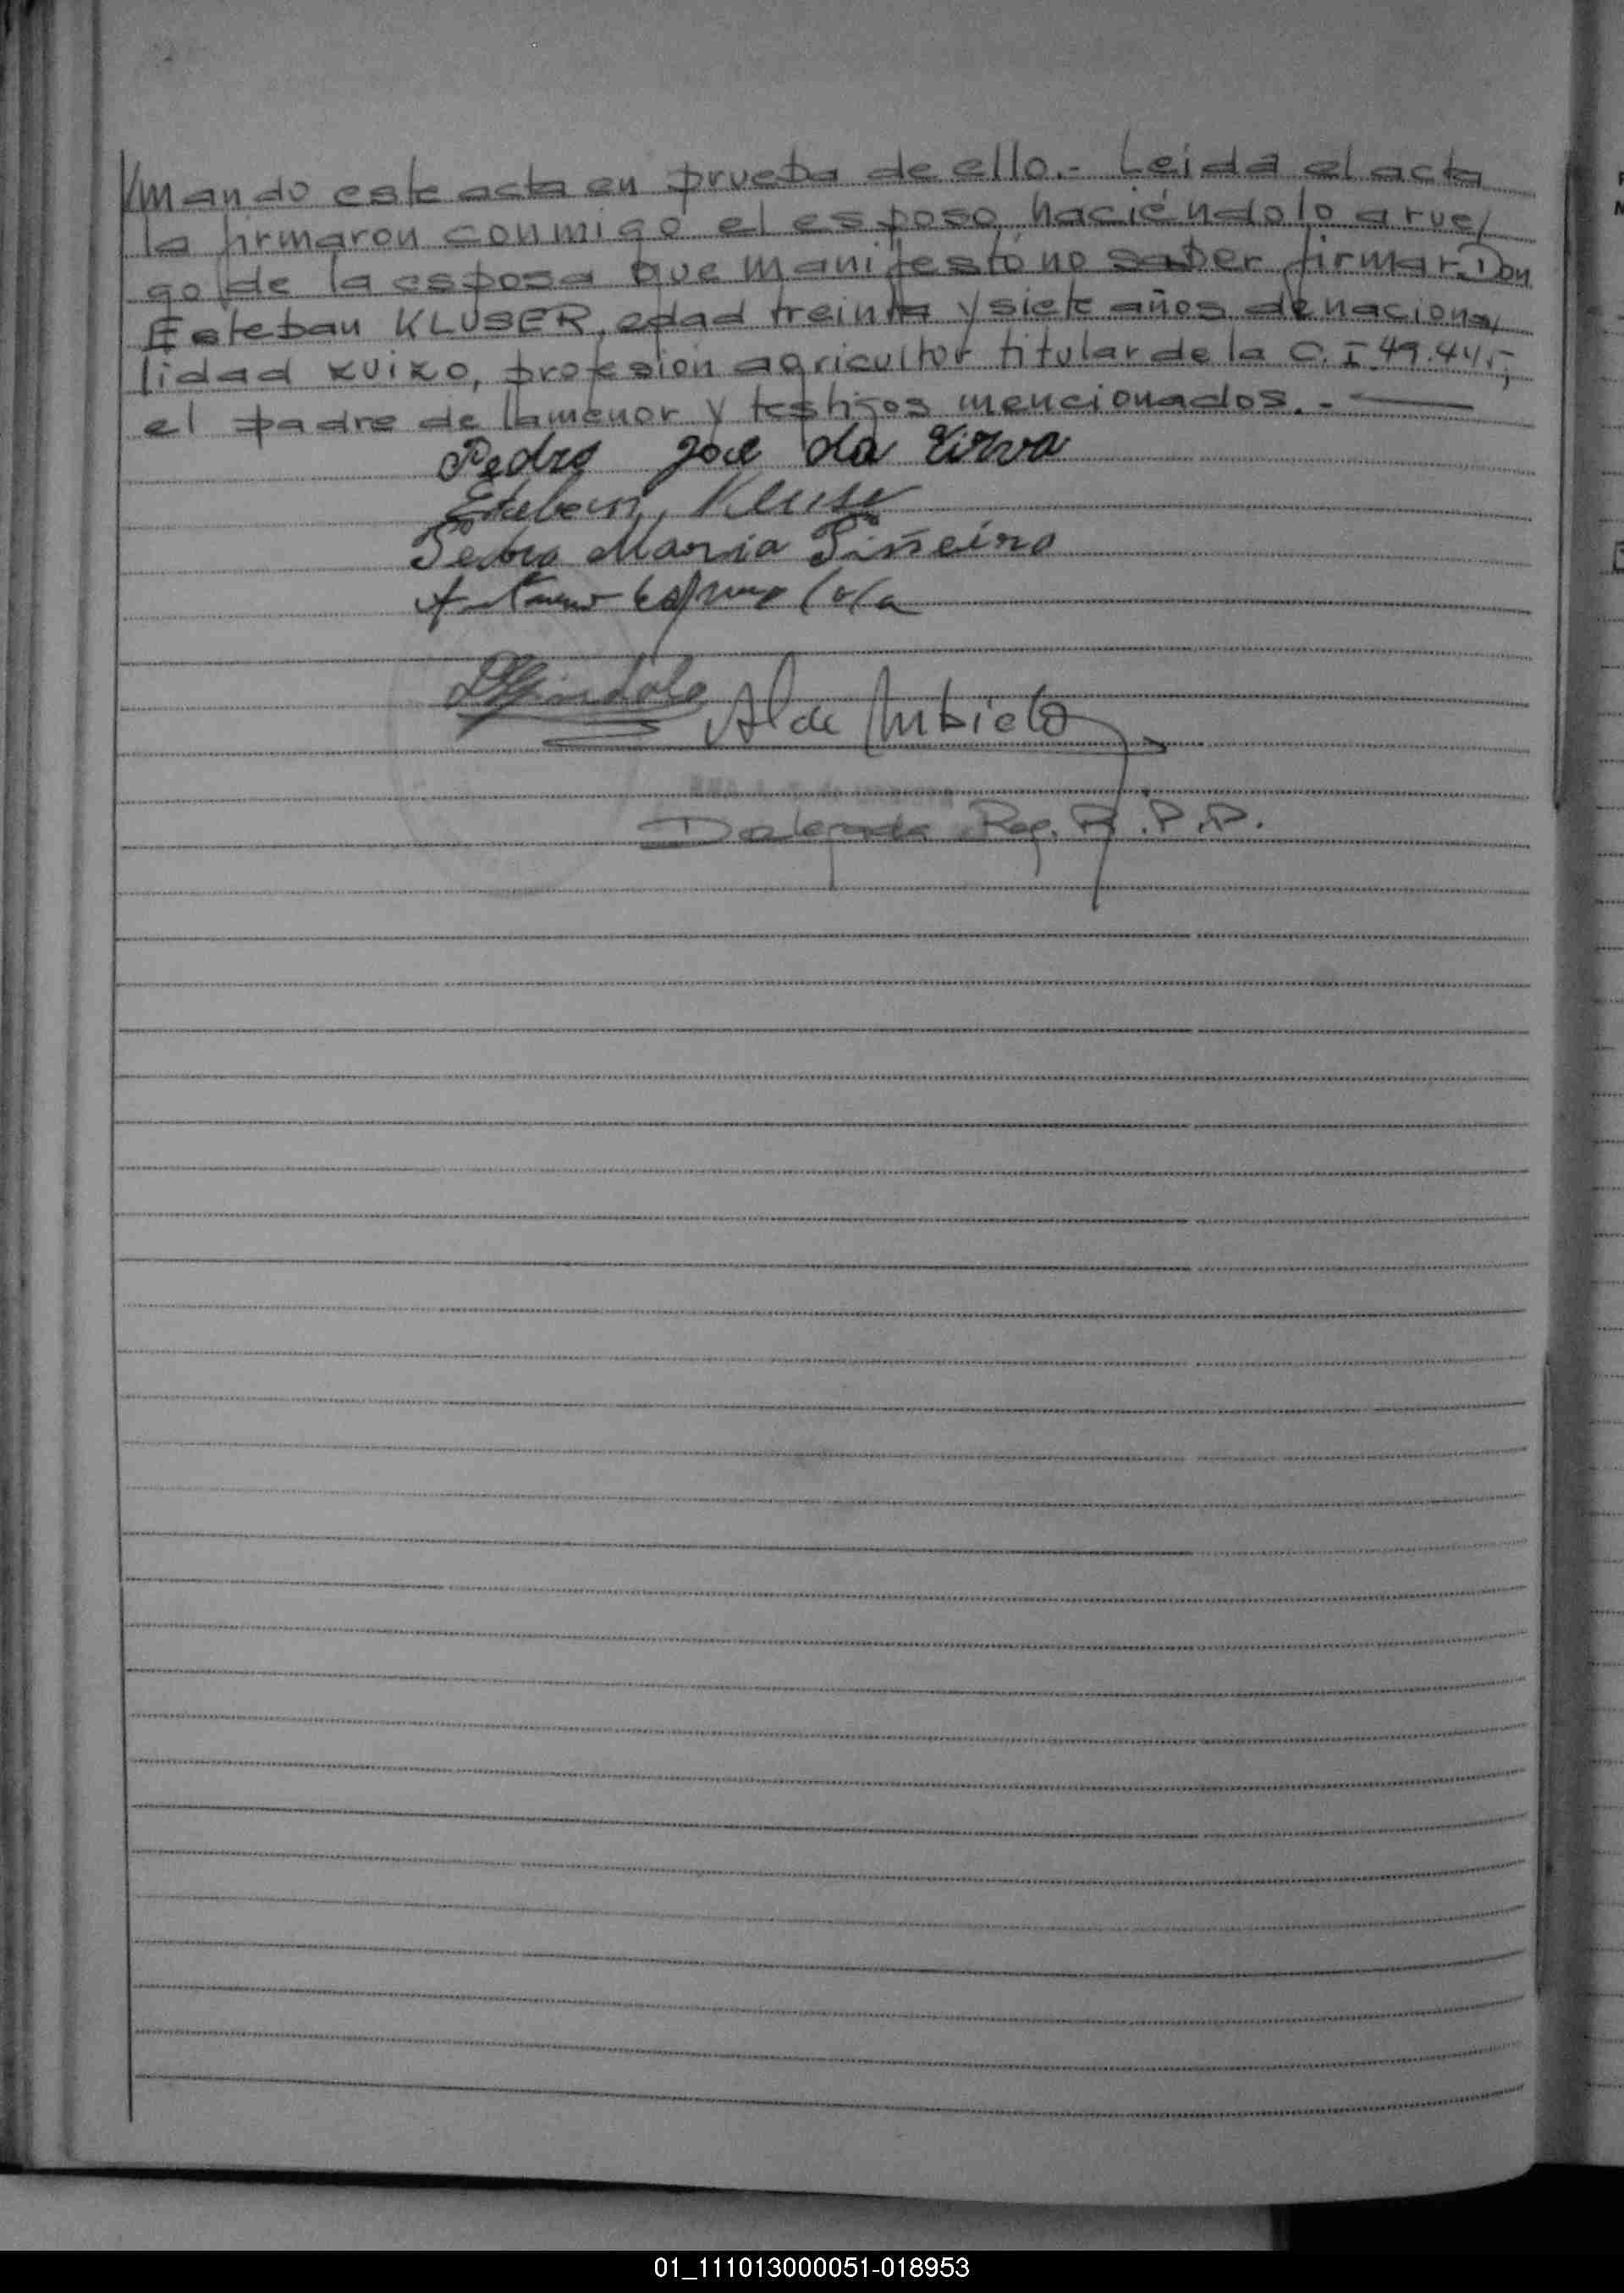 mando este acta en prueba de ello.- Leida el acta
la firmaron conmigo el esposo, haciéndolo a rue/
go de la esposa que manifestó no saber firmar, Don
Esteban KLUSER, edad treinta y siete años de naciona/
lidad xuixo, profesión agricultor titular de la C. I. 49.441,-
el padre de la menor y testigos mencionados. -
Pedro José da Silva
Esteban Kluser
Pedro Maria Piñeiro
Alde Umbielo
Delegada Reg. R.P.P.